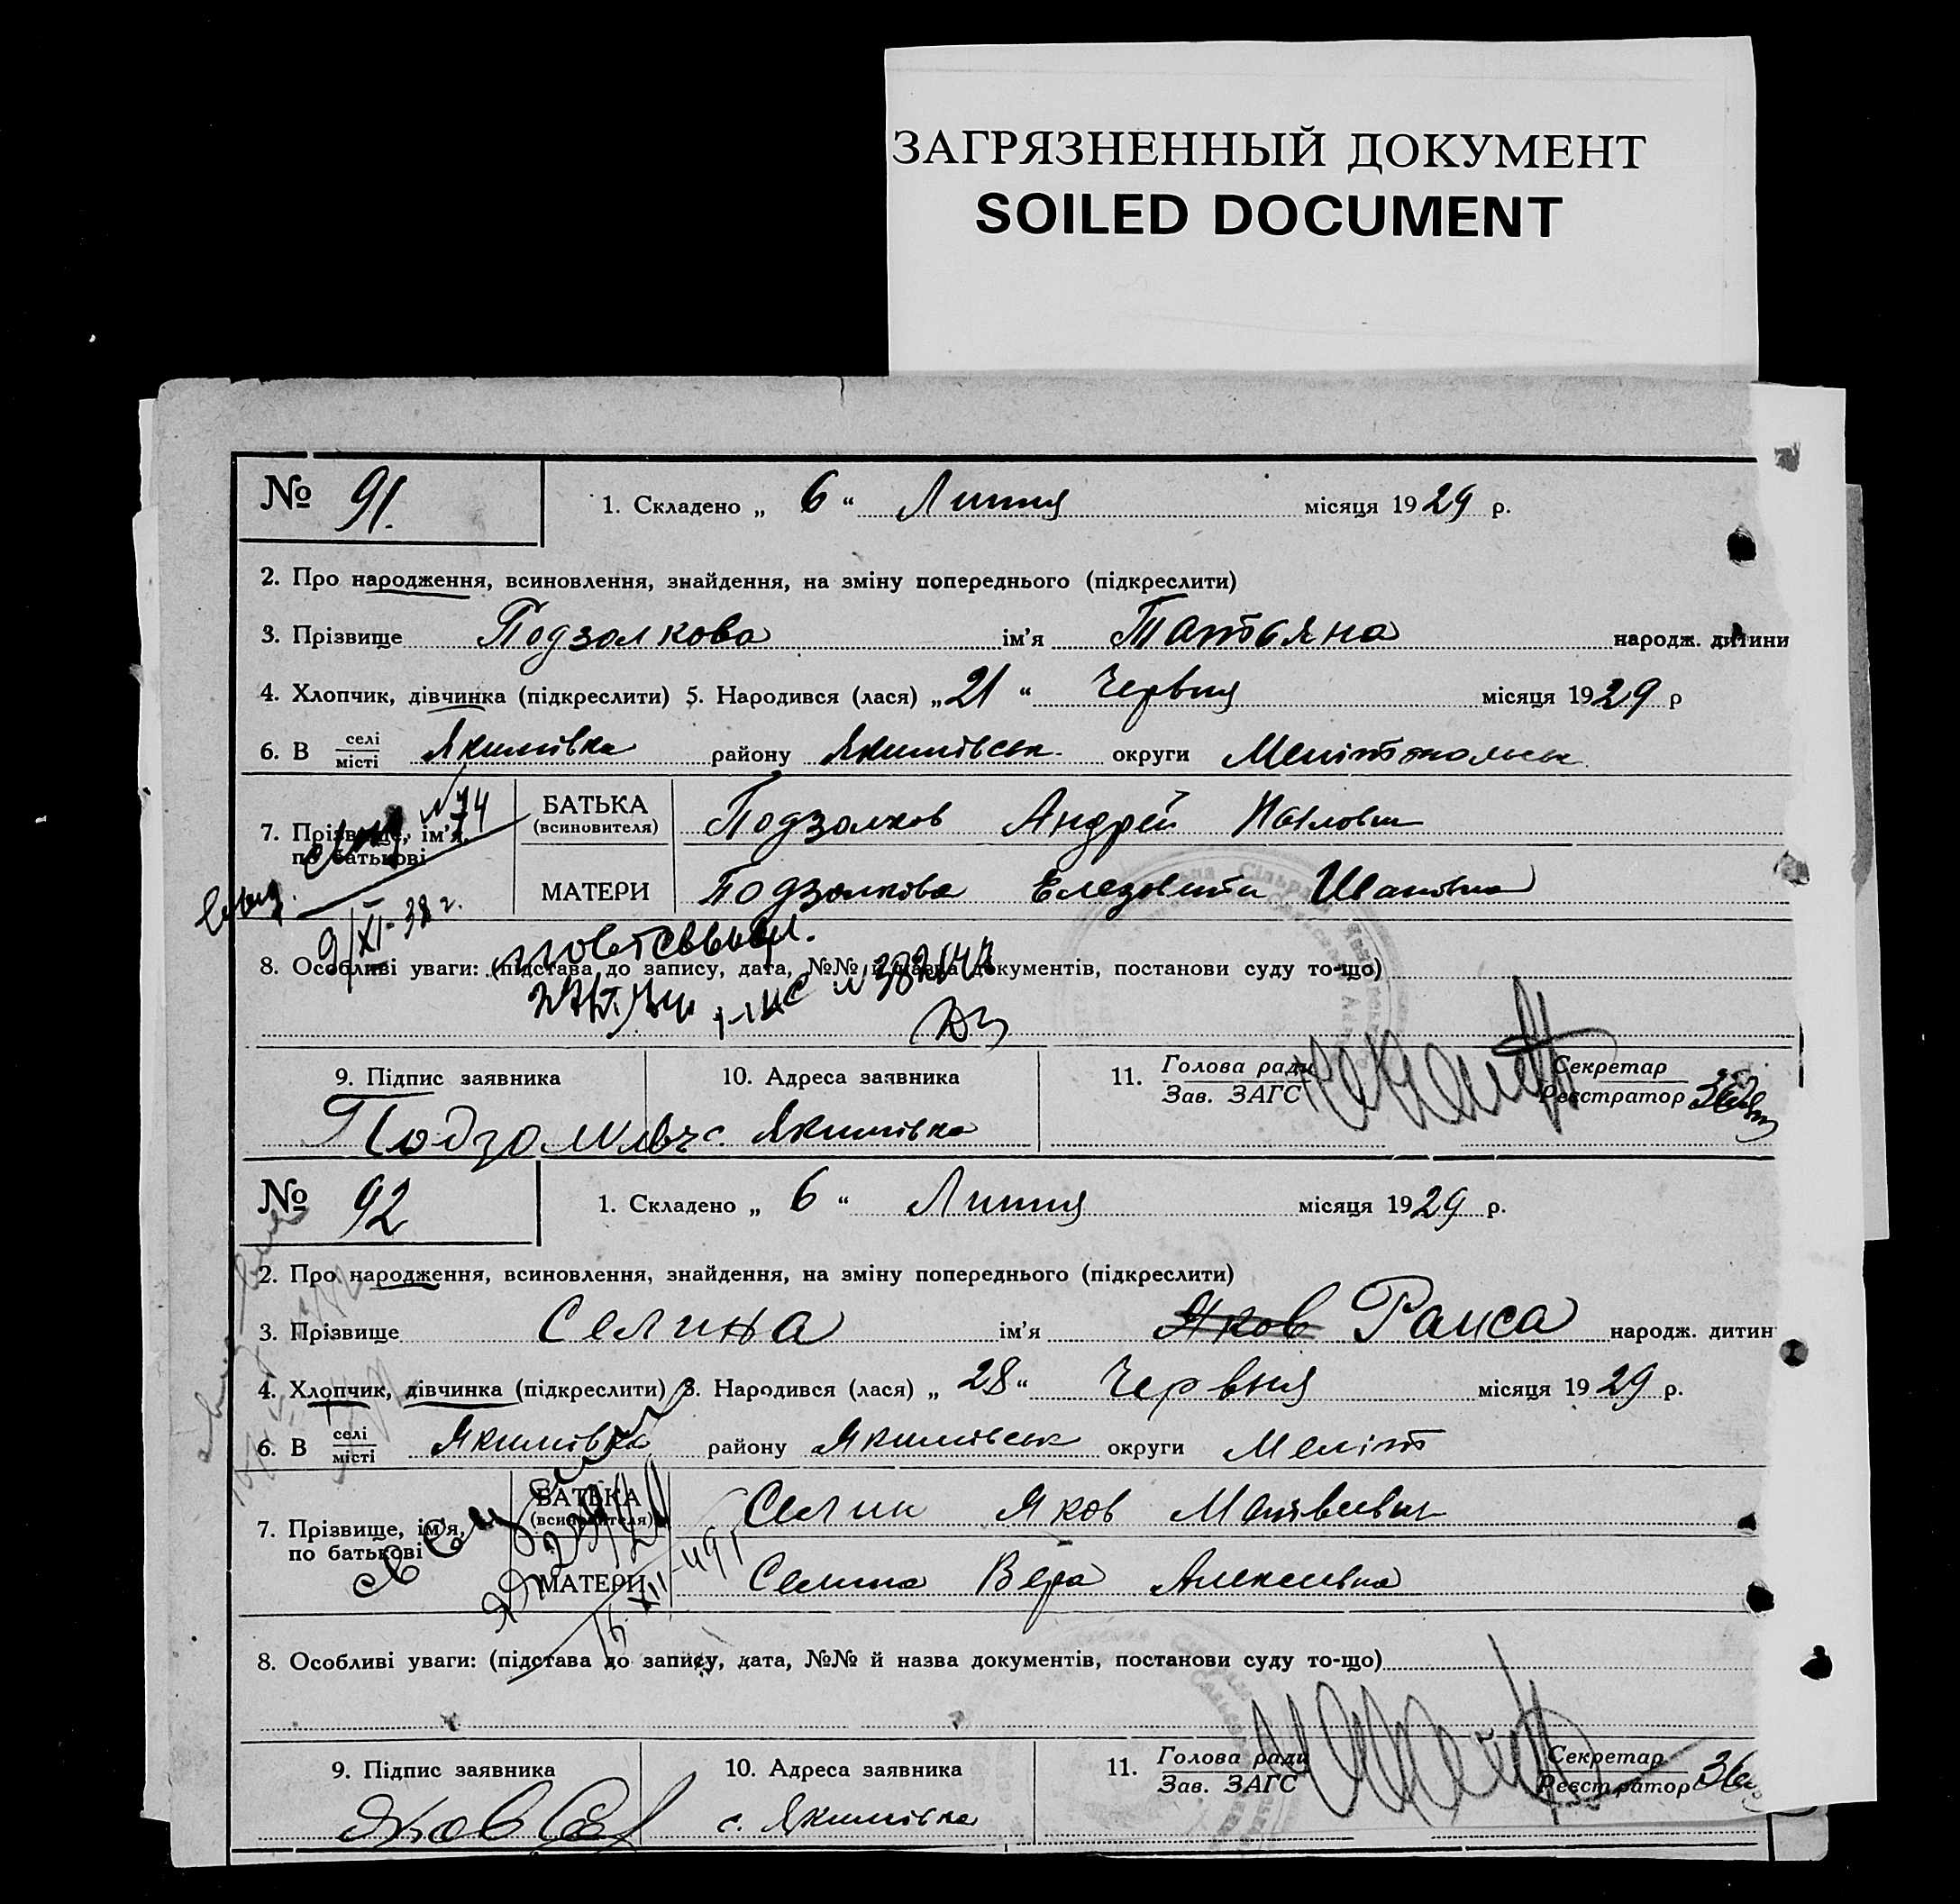 ЗАГРЯЗНЕННЫЙ ДОКУМЕНТ
SOILED DOCUMENT
№ 91. 1. Складено „ 6 “ Липня місяця 1929 р.
2. Про народження, всиновлення, знайдення, на зміну попереднього (підкреслити)
3. Прізвище Подзолкова ім’я Татьяна народж. дитини
4. Хлопчик, дівчинка (підкреслити) 5. Народився (лася) „ 21 “ Червня місяця 1929 р
6. В селі місті Якимівка району Якимівськ. округи Мелітопольськ.
№74
7. Прізвище, ім’я, по батькові
БАТЬКА (всиновителя) Подзолков Андрей Павлович
МАТЕРИ Подзолкова Елезовита Ивановна
9/XI-38 г.
8. Особливі уваги: (підстава до запису, дата, №№ й назва документів, постанови суду то-що)
9. Підпис заявника 10. Адреса заявника 11. Голова ради Зав. ЗАГС Секретар Реєстратор
с. Якимівка
№ 92 1. Складено „ 6 “ Липня місяця 1929 р.
2. Про народження, всиновлення, знайдення, на зміну попереднього (підкреслити)
3. Прізвище Селина ім’я Яков Раиса народж. дитин
4. Хлопчик, дівчинка (підкреслити) 5. Народився (лася) „ 28 “ Червня місяця 1929 р.
6. В селі місті Якимівка району Якимівськ округи Меліт
7. Прізвище, ім’я, по батькові
БАТЬКА (всиновителя) Селин Яков Матвеевич
МАТЕРИ Селина Вера Алексеевна
8. Особливі уваги: (підстава до запису, дата, №№ й назва документів, постанови суду то-що)
9. Підпис заявника 10. Адреса заявника 11. Голова ради Зав. ЗАГС Секретар Реєстратор
Яков с. Якимівка